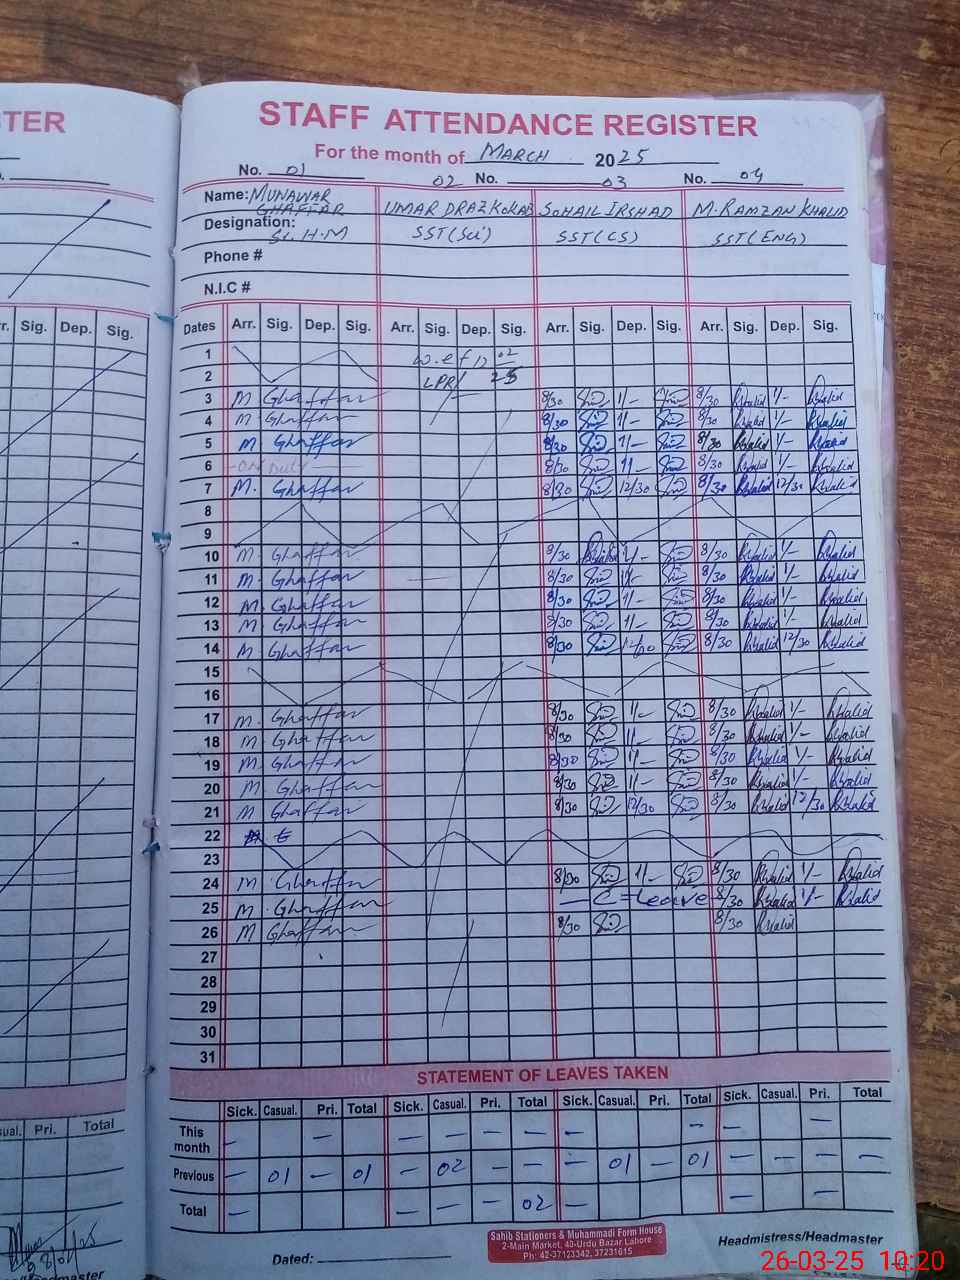 TER
STAFF ATTENDANCE REGISTER
For the month of MARCH 2025
No. 01 02 No. 03 No. 04
Name: MUNAWAR GHAFFAR UMAR DRAZ KOKAB SOHAIL IRSHAD M. RAMZAN KHALID
Designation: S.H.M SST(Sci) SST(CS) SST(ENG)
Phone #
N.I.C #
r. Sig. Dep. Sig.
Dates Arr. Sig. Dep. Sig. Arr. Sig. Dep. Sig. Arr. Sig. Dep. Sig. Arr. Sig. Dep. Sig.
1 w.e.f 02
2 LPR 25
3 M Ghaffar 8/30 1/- 8/30 Khalid 1/- Khalid
4 M Ghaffar 8/30 1/- 8/30 Khalid 1/- Khalid
5 M Ghaffar 8/30 1/- 8/30 Khalid 1/- Khalid
6 On Duty 8/30 1/- 8/30 Khalid 1/- Khalid
7 M. Ghaffar 8/30 12/30 8/30 Khalid 12/30 Khalid
8
9
10 M. Ghaffar 8/30 1/- 8/30 Khalid 1/- Khalid
11 M. Ghaffar 8/30 1/- 8/30 Khalid 1/- Khalid
12 M. Ghaffar 8/30 1/- 8/30 Khalid 1/- Khalid
13 M. Ghaffar 8/30 1/- 8/30 Khalid 1/- Khalid
14 M. Ghaffar 8/30 12/30 8/30 Khalid 12/30 Khalid
15
16
17 M. Ghaffar 8/30 1/- 8/30 Khalid 1/- Khalid
18 M. Ghaffar 8/30 1/- 8/30 Khalid 1/- Khalid
19 M. Ghaffar 8/30 1/- 8/30 Khalid 1/- Khalid
20 M. Ghaffar 8/30 1/- 8/30 Khalid 1/- Khalid
21 M. Ghaffar 8/30 12/30 8/30 Khalid 12/30 Khalid
22
23
24 M. Ghaffar 8/30 1/- 8/30 Khalid 1/- Khalid
25 M. Ghaffar — C = Leave 8/30 Khalid 1/- Khalid
26 M Ghaffar 8/30 8/30 Khalid
27
28
29
30
31
STATEMENT OF LEAVES TAKEN
Sick. Casual. Pri. Total Sick. Casual. Pri. Total Sick. Casual. Pri. Total Sick. Casual. Pri. Total
ual. Pri. Total
This month — — — — — — — — — —
Previous — 01 — 01 — 02 — — — 01 — 01 — — — —
Total — — — — 02 — — —
Sahib Stationers & Muhammadi Form House
2-Main Market, 40-Urdu Bazar Lahore
Ph: 42-37123342, 37231615
Dated:
Headmistress/Headmaster
s/Headmaster
26-03-25 10:20